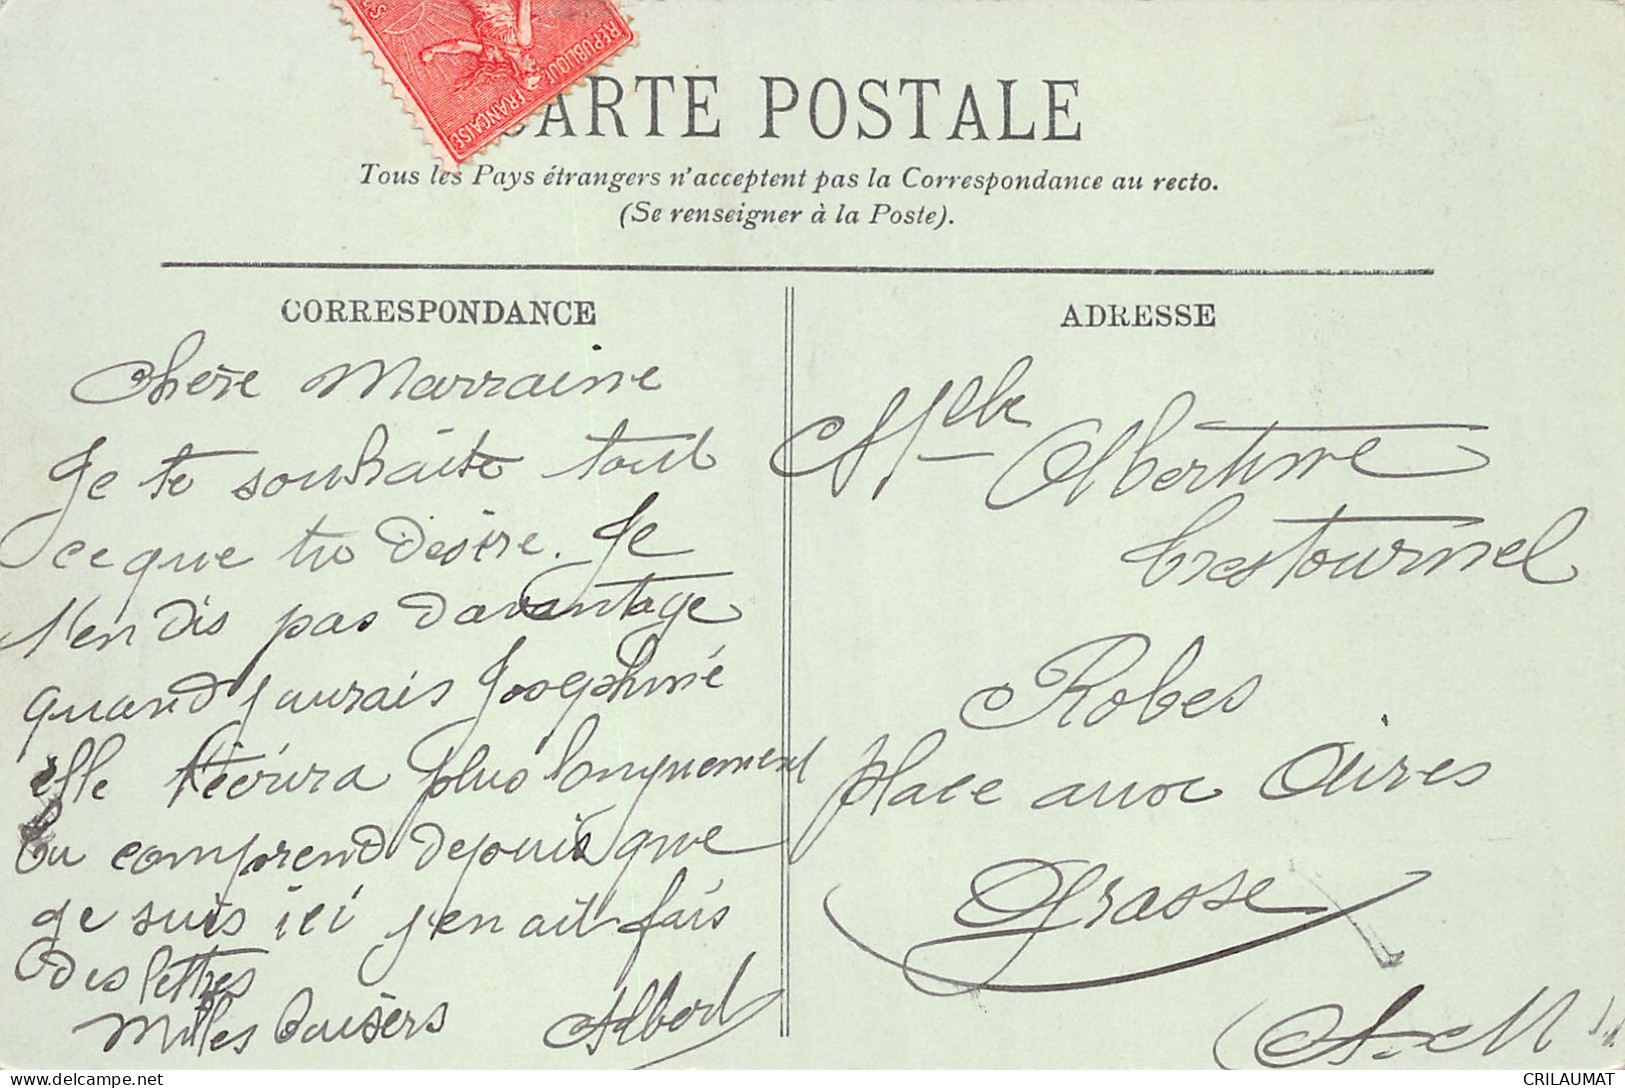 RÉPUBLIQUE FRANÇAISE
CARTE POSTALE
Tous les Pays étrangers n'acceptent pas la Correspondance au recto.
(Se renseigner à la Poste).
CORRESPONDANCE
Chère Marraine
Je te souhaite tout
ce que tu désire. Je
t'en dis pas davantage
quand j'aurais Josephine
elle t'écrira plus longuement
Tu comprend depuis que
je suis ici j'en ait fais
des lettres
Milles baisers Albert
ADRESSE
Melle Albertine
Crestournel
Robes
place aux Aires
Grasse
(A.-M)
CRILAUMAT